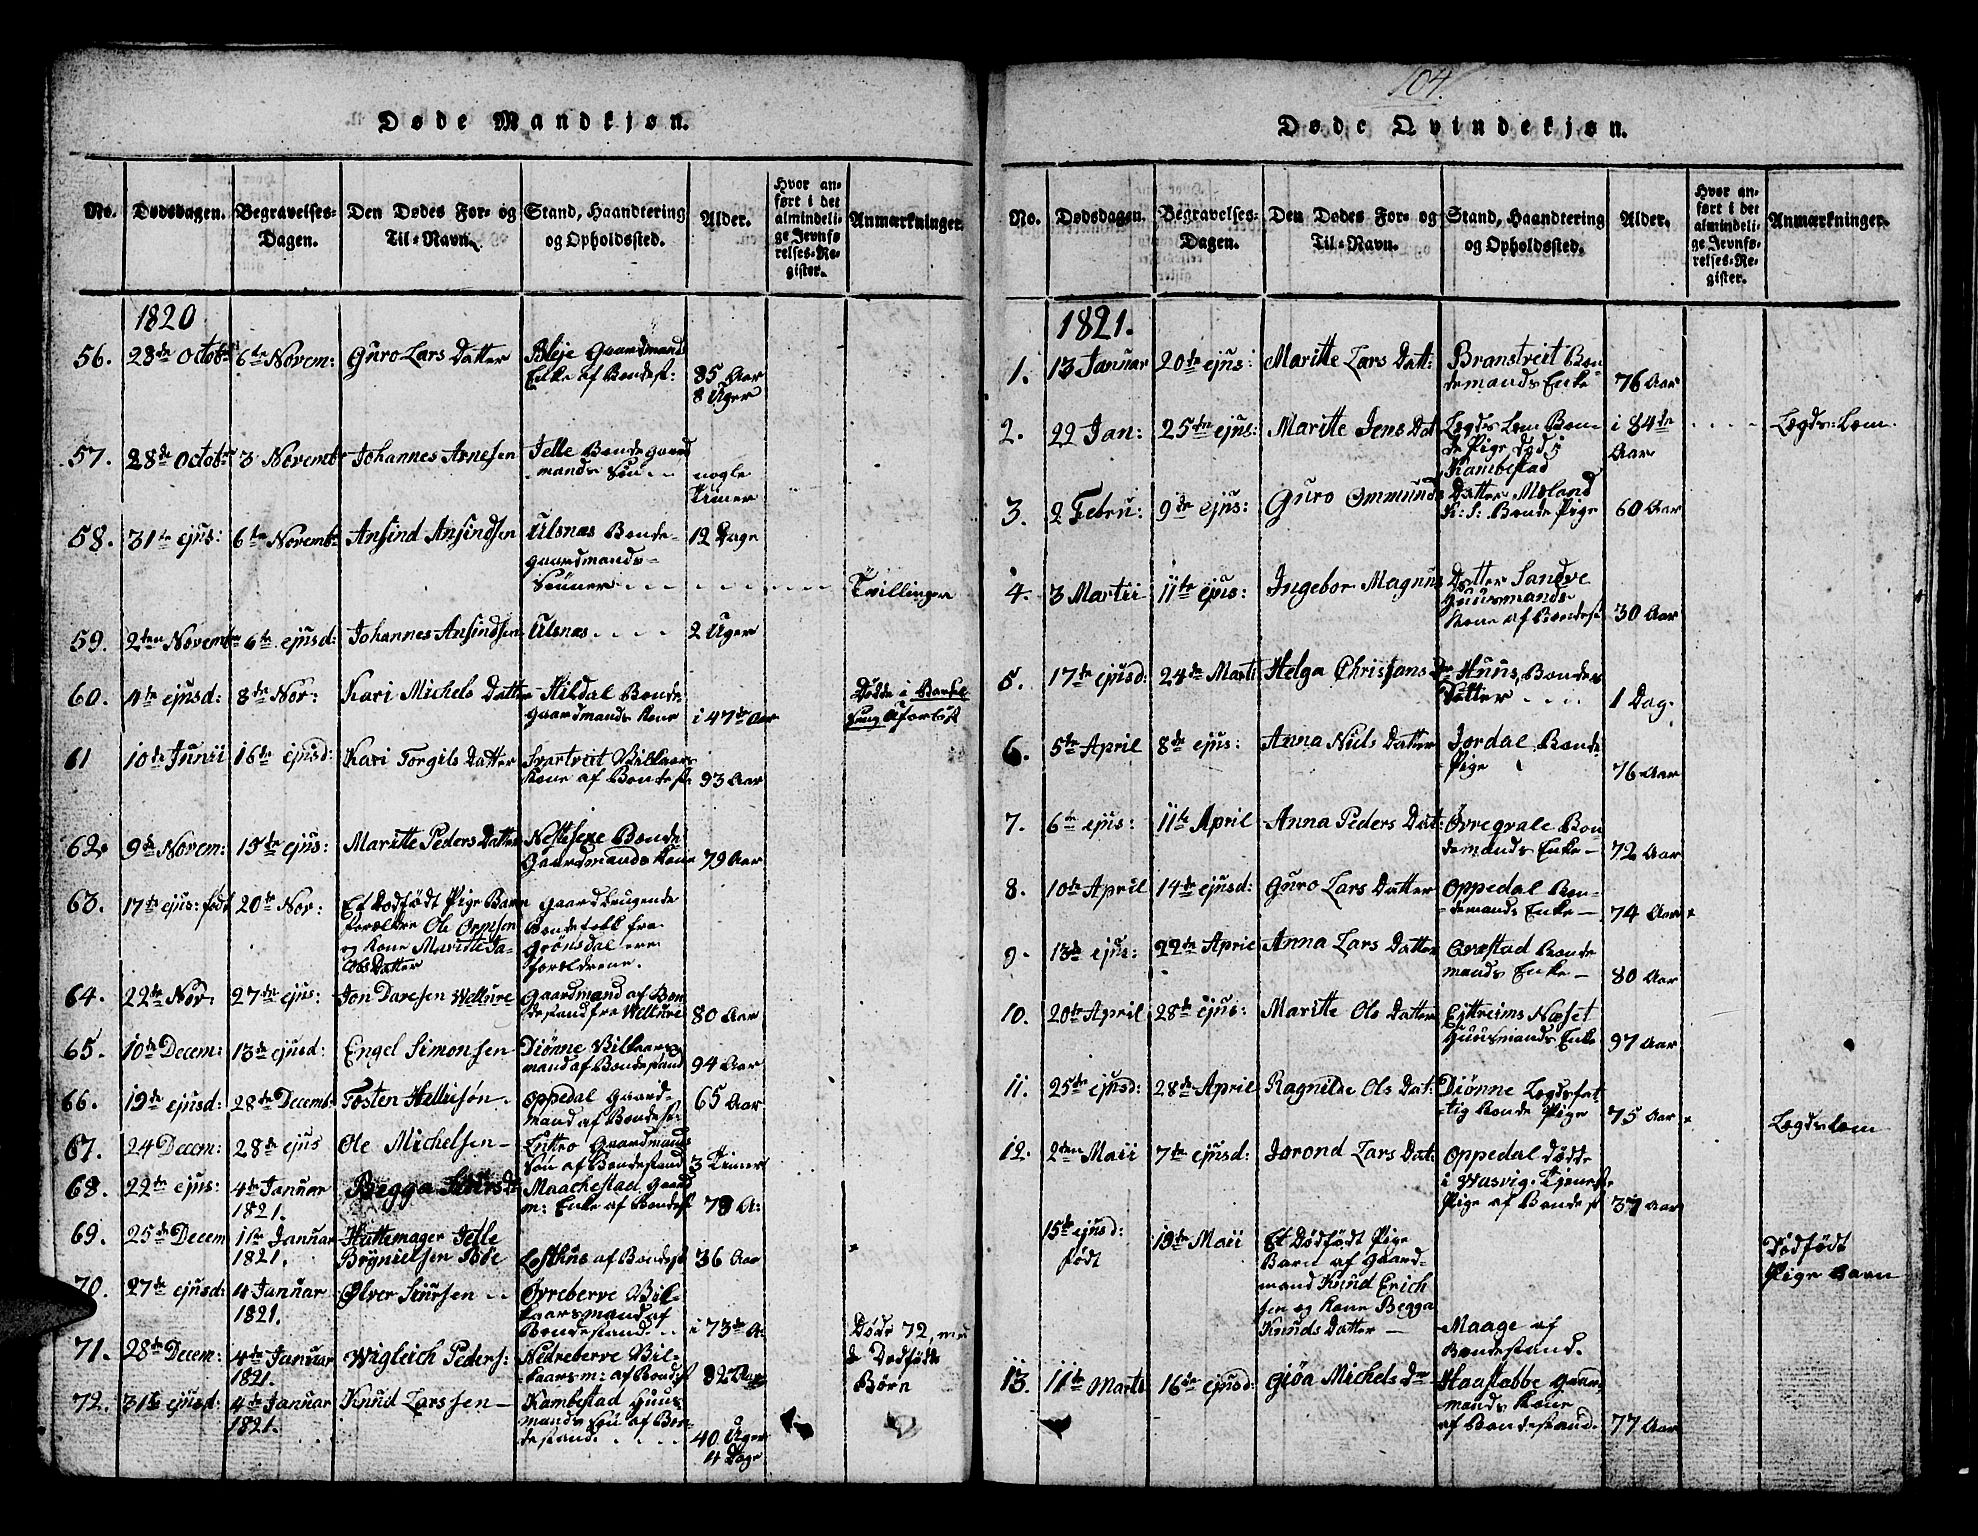 104.
Døde Mandkjøn.
No. Dødsdagen. Begravelses-Dagen. Den Dødes For- og Til-Navn. Stand, Haandtering og Opholdssted. Alder. Hvor anført i det almindelige Jevnførelses-Register. Anmærkninger.
1820
56. 28de Octob 6te Novem: Guro Lars Datter Bleje Gaardmand
Enke af Bondest: 85 Aar
8 Uger
57. 28de Octob 3 Novemb Johannes Arnesen Jelle Bonde Gaard
mands Søn nogle
Timer
58. 31te ejus: 6te Novemb Ansind Ansindsen Ulsnæs Bonde- 12 Dage
gaardmands-
Sønner Tvillinger
59. 2den Novemb 6te ejusd: Johannes Ansindsen Ulsnæs 2 Uger
60. 4de ejusd: 8de Nov: Kari Michels Datter Hildal Bonde Døde i Barsel
gaardmands Kone i 47de Aar Seng uforløst
61 10de Junii 16te ejusd: Kari Torgils Datter Svartveit Vilkaars
Kone af Bondest 93 Aar
62. 9de Novem: 15de ejus: Maritte Peders Datter Nestesexe Bonde
Gaardmands Kone 79 Aar
63. 17te ejus: født 20de Nov: Et Dødfødt Pige Barn Gaard brugende
Forældre Ole Ormsen Bondefolk fra
og Kone Maritte Da- Grønsdal ere
Ols Datter Forældrene.
64. 22de Nov. 27de ejus: Jon Daresen Wellure Gaardmand af Bon
destand fra Wellure 80 Aar
65. 10de Decem: 13de ejusd: Engel Simonsen Diønne Vilkaars
mand af Bondestand 94 Aar
66. 19de ejusd: 28de Decemb Tosten Hellisøn Oppedal Gaard- 65 Aar
mand af Bondest
67. 24 Decem: 28de ejus Ole Michelsen Luttro Gaardmands
Søn af Bondestand 3 Timer
68. 22de ejus: 4de Januar Begga Siurs Maachestad Gaard
1821. m: Enke af Bondest 79 A:
69. 25de Decem 11te Januar Hattemager Jelle
1821. Brynielsen Tode Losthus af Bondest 36 Aar
70. 27de ejusd: 4 Januar Ølver Siursen Øvreberve Vil-
1821. kaarsmand af
Bondestand i 73de A: Døde 72, med
71. 28de Decem: 4de Januar Wigleich Peders: Nedreberve Vil- de Dødfødte
1821. kaarsm: af Bondest 82 Aar Børn
72. 31te ejusd: 4de Januar Knud Larssen Kambestad Huus
1821. mands Søn af Bon-
destand. 40 Uger
4 Dage
Døde Qvindekjøn.
No. Dødsdagen. Begravelses-Dagen. Den Dødes For- og Til-Navn. Stand, Haandtering og Opholdssted. Alder. Hvor anført i det almindelige Jevnførelses-Register. Anmærkninger.
1821.
1. 13 Januar 20de ejus: Maritte Lars Datt: Branstveit Bon
demands Enke 76 Aar
2. 22 Jan: 25de ejus: Maritte Jens Dat Lægds Lem Bon i 84de Lægds-Lem
de Pige død i Aar
Kambestad
3. 2 Febru: 9de ejus: Guro Ommunds Datter Moland
K: S: Bonde Pige 60 Aar
4. 3 Martii 11te ejus: Ingebor Magnus Datter Sandve
Huusmands
Kone af Bondest 30 Aar
5. 17de ejusd: 24de Marti Helga Christians Huus, Bonde
Datter 1 Dag.
6. 5te April 8de ejus: Anna Niels Datter Jordal Bonde
Pige 76 Aar
7. 6te ejus: 11te April Anna Peders Dat: Øvregrale Bon
demands Enke 72 Aar
8. 10de April 14de ejusd: Guro Lars Datter Oppedal Bon-
demands Enke 74 Aar
9. 13de ejus: 22de April Anna Lars Datter Qvæstad Bonde
mands Enke 80 Aar
10. 20de April 28de ejus: Maritte Ols Datter Ejttreims Næset
Huusmands Enke 97 Aar
11. 25de ejusd: 28de April Ragnilde Ols Dat: Diønne Lægdsfat
tig Bonde Pige 75 Aar Lægdslem
12. 2den Maii 7de ejusd: Jorond Lars Dat: Oppedal Dødte
i Wasvig. Tjeneste
Pige af Bondest 37 Aar
15de ejusd: 19de Maii Et Dødfødt Pige Dødfødt
født Barn af Gaard- Pige Barn
mand Knud Erich
sen og Kone Begga
Knuds Datter Maage af
Bondestand.
13. 11te Marti 16de ejusd: Giøa Michels Dr Haastabbe Gaar
mands Kone
af Bondestand. 77 Aar